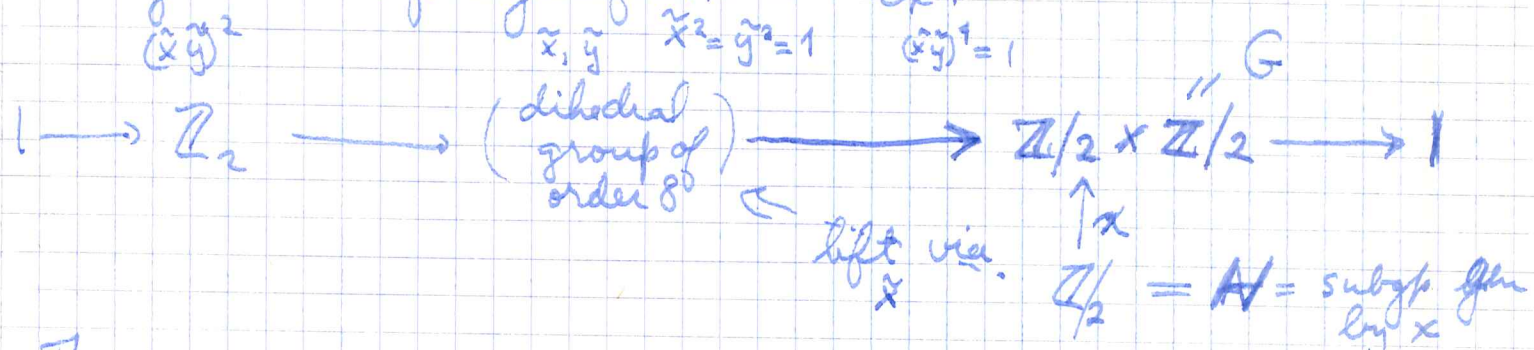 (x̃ỹ)² x̃, ỹ x̃² = ỹ² = 1 (x̃ỹ)⁴ = 1 G
1 → ℤ₂ → (dihedral group of order 8) → ℤ/2 × ℤ/2 → 1
↑ x
lift via x̃
ℤ/2 = N = subgp gen by x